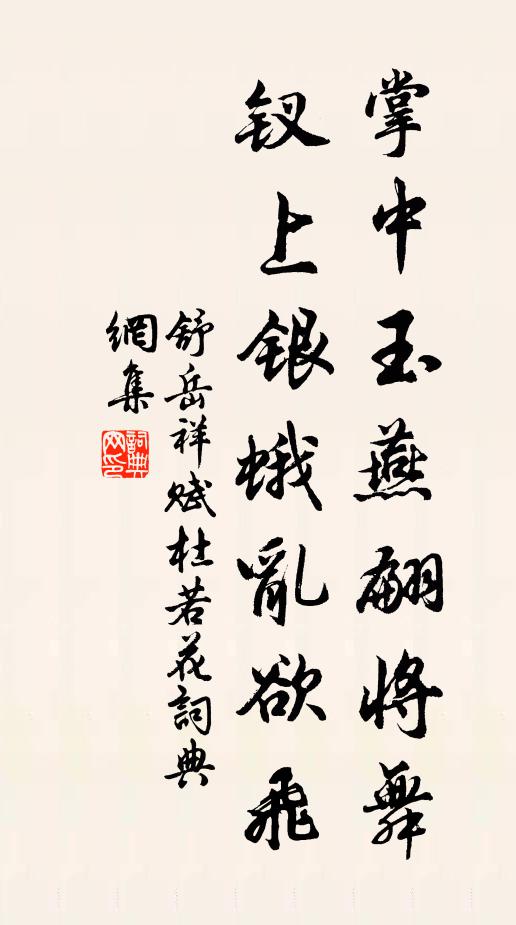 掌中玉燕翩將舞
釵上銀蛾亂欲飛
舒岳祥賦杜若花詞典
網集
詞典網印